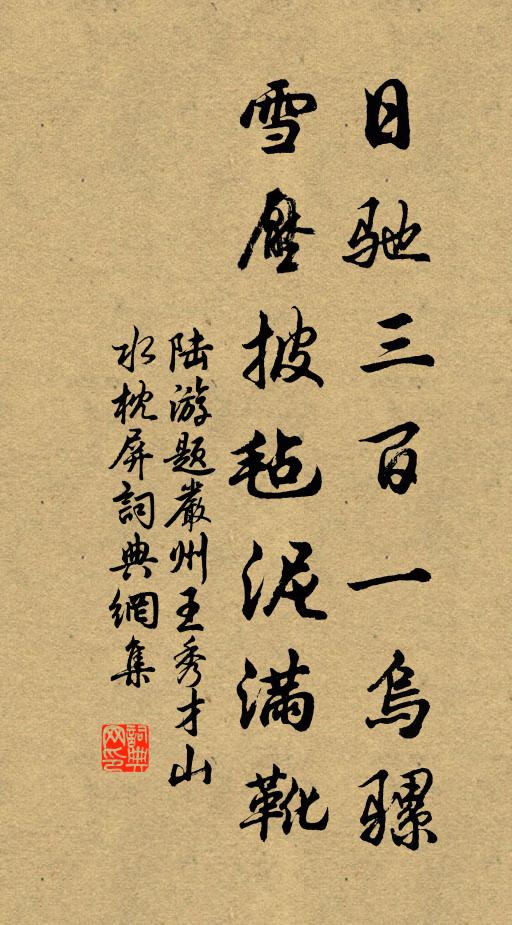 日驰三百一乌骡
雪压披毡泥满靴
陆游题嚴州王秀才山
水枕屏詞典網集
詞典網印